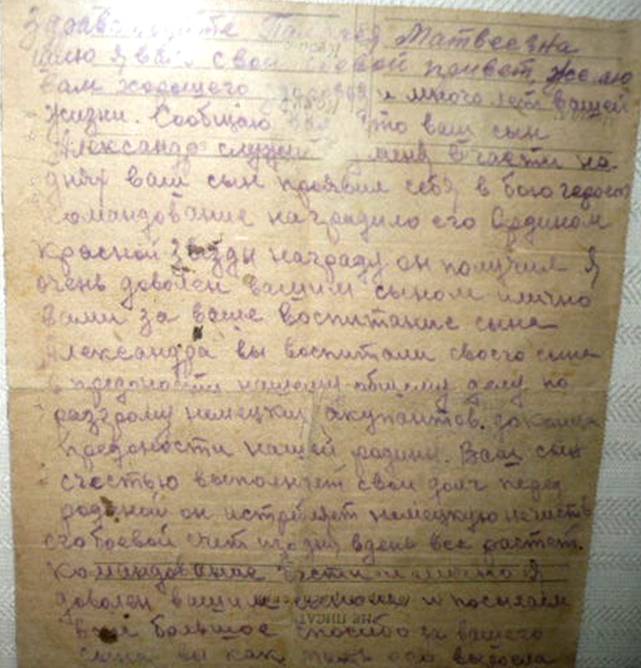 Здравствуйте Матвеевна
шлю я вам свой боевой привет, желаю
вам хорошего и много лет вашей
жизни. Сообщаю вам что ваш сын
Александр служит меня в части на-
днях ваш сын проявил себя в бою
командование наградило его Орденом
красной звезды награду он получил я
очень доволен вашим сыном и лично
вами за ваше воспитание сына
Александра вы воспитали своего сына
в преданости нашему общему делу по
разгрому немецких акупантов.
преданости нашей родины. Ваш сын
счестью выполняет свой долг перед
родиной он истребляет немецкую нечисть
его боевой счет изо дня вдень все растет.
командование части и лично я
доволен вашим сыном и посылаем
вам большое спасибо за вашего
сына вы как мать